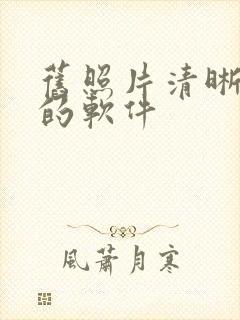 舊照片清晰
的軟件
風蕭月寒